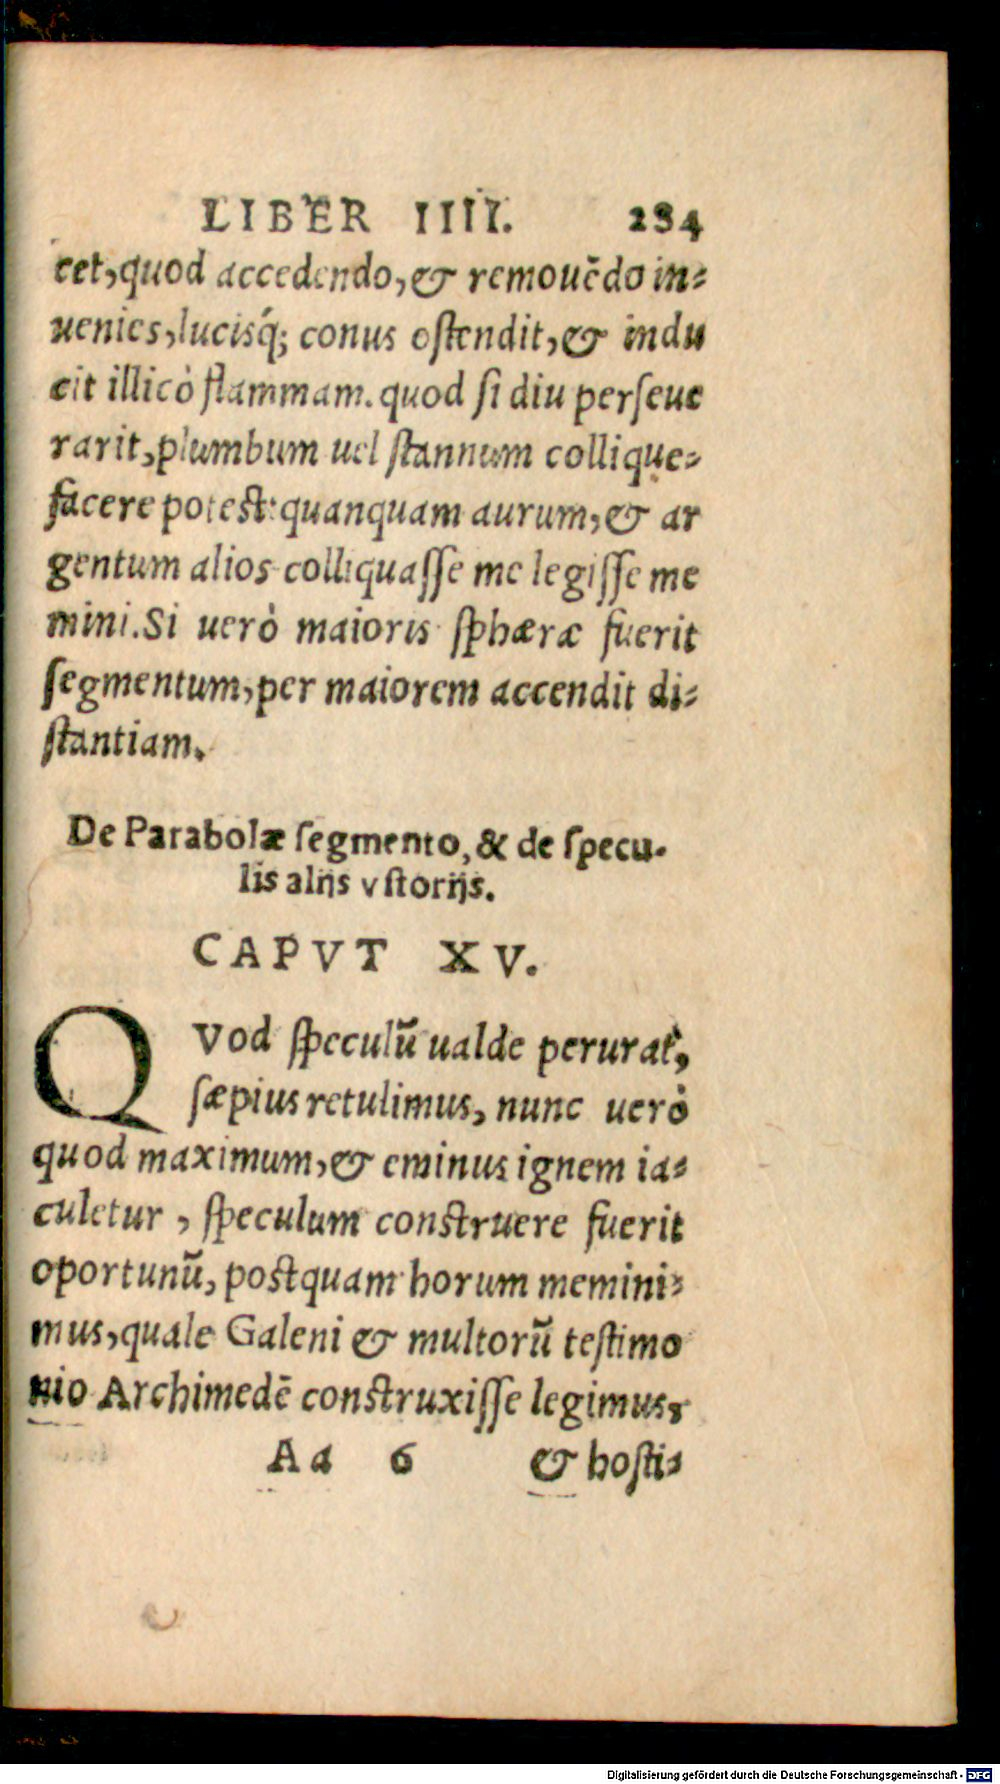 LIBER IIII. 234
cet, quod accedendo, & remouēdo in-
uenies, lucisq́; conus ostendit, & indu
cit illicò flammam. quod si diu perseue
rarit, plumbum uel stannum collique-
facere potest: quanquam aurum, & ar
gentum alios colliquasse me legisse me
mini. Si uerò maioris sphæræ fuerit
segmentum, per maiorem accendit di-
stantiam.
De Parabolæ segmento, & de specu-
lis alijs vstorijs.
CAPVT XV.
QVod speculū ualde perurat,
sæpius retulimus, nunc uerò
quod maximum, & eminus ignem ia-
culetur, speculum construere fuerit
oportunū, postquam horum memini-
mus, quale Galeni & multorū testimo
nio Archimedē construxisse legimus,
Aa 6 & hosti-
Digitalisierung gefördert durch die Deutsche Forschungsgemeinschaft - DFG